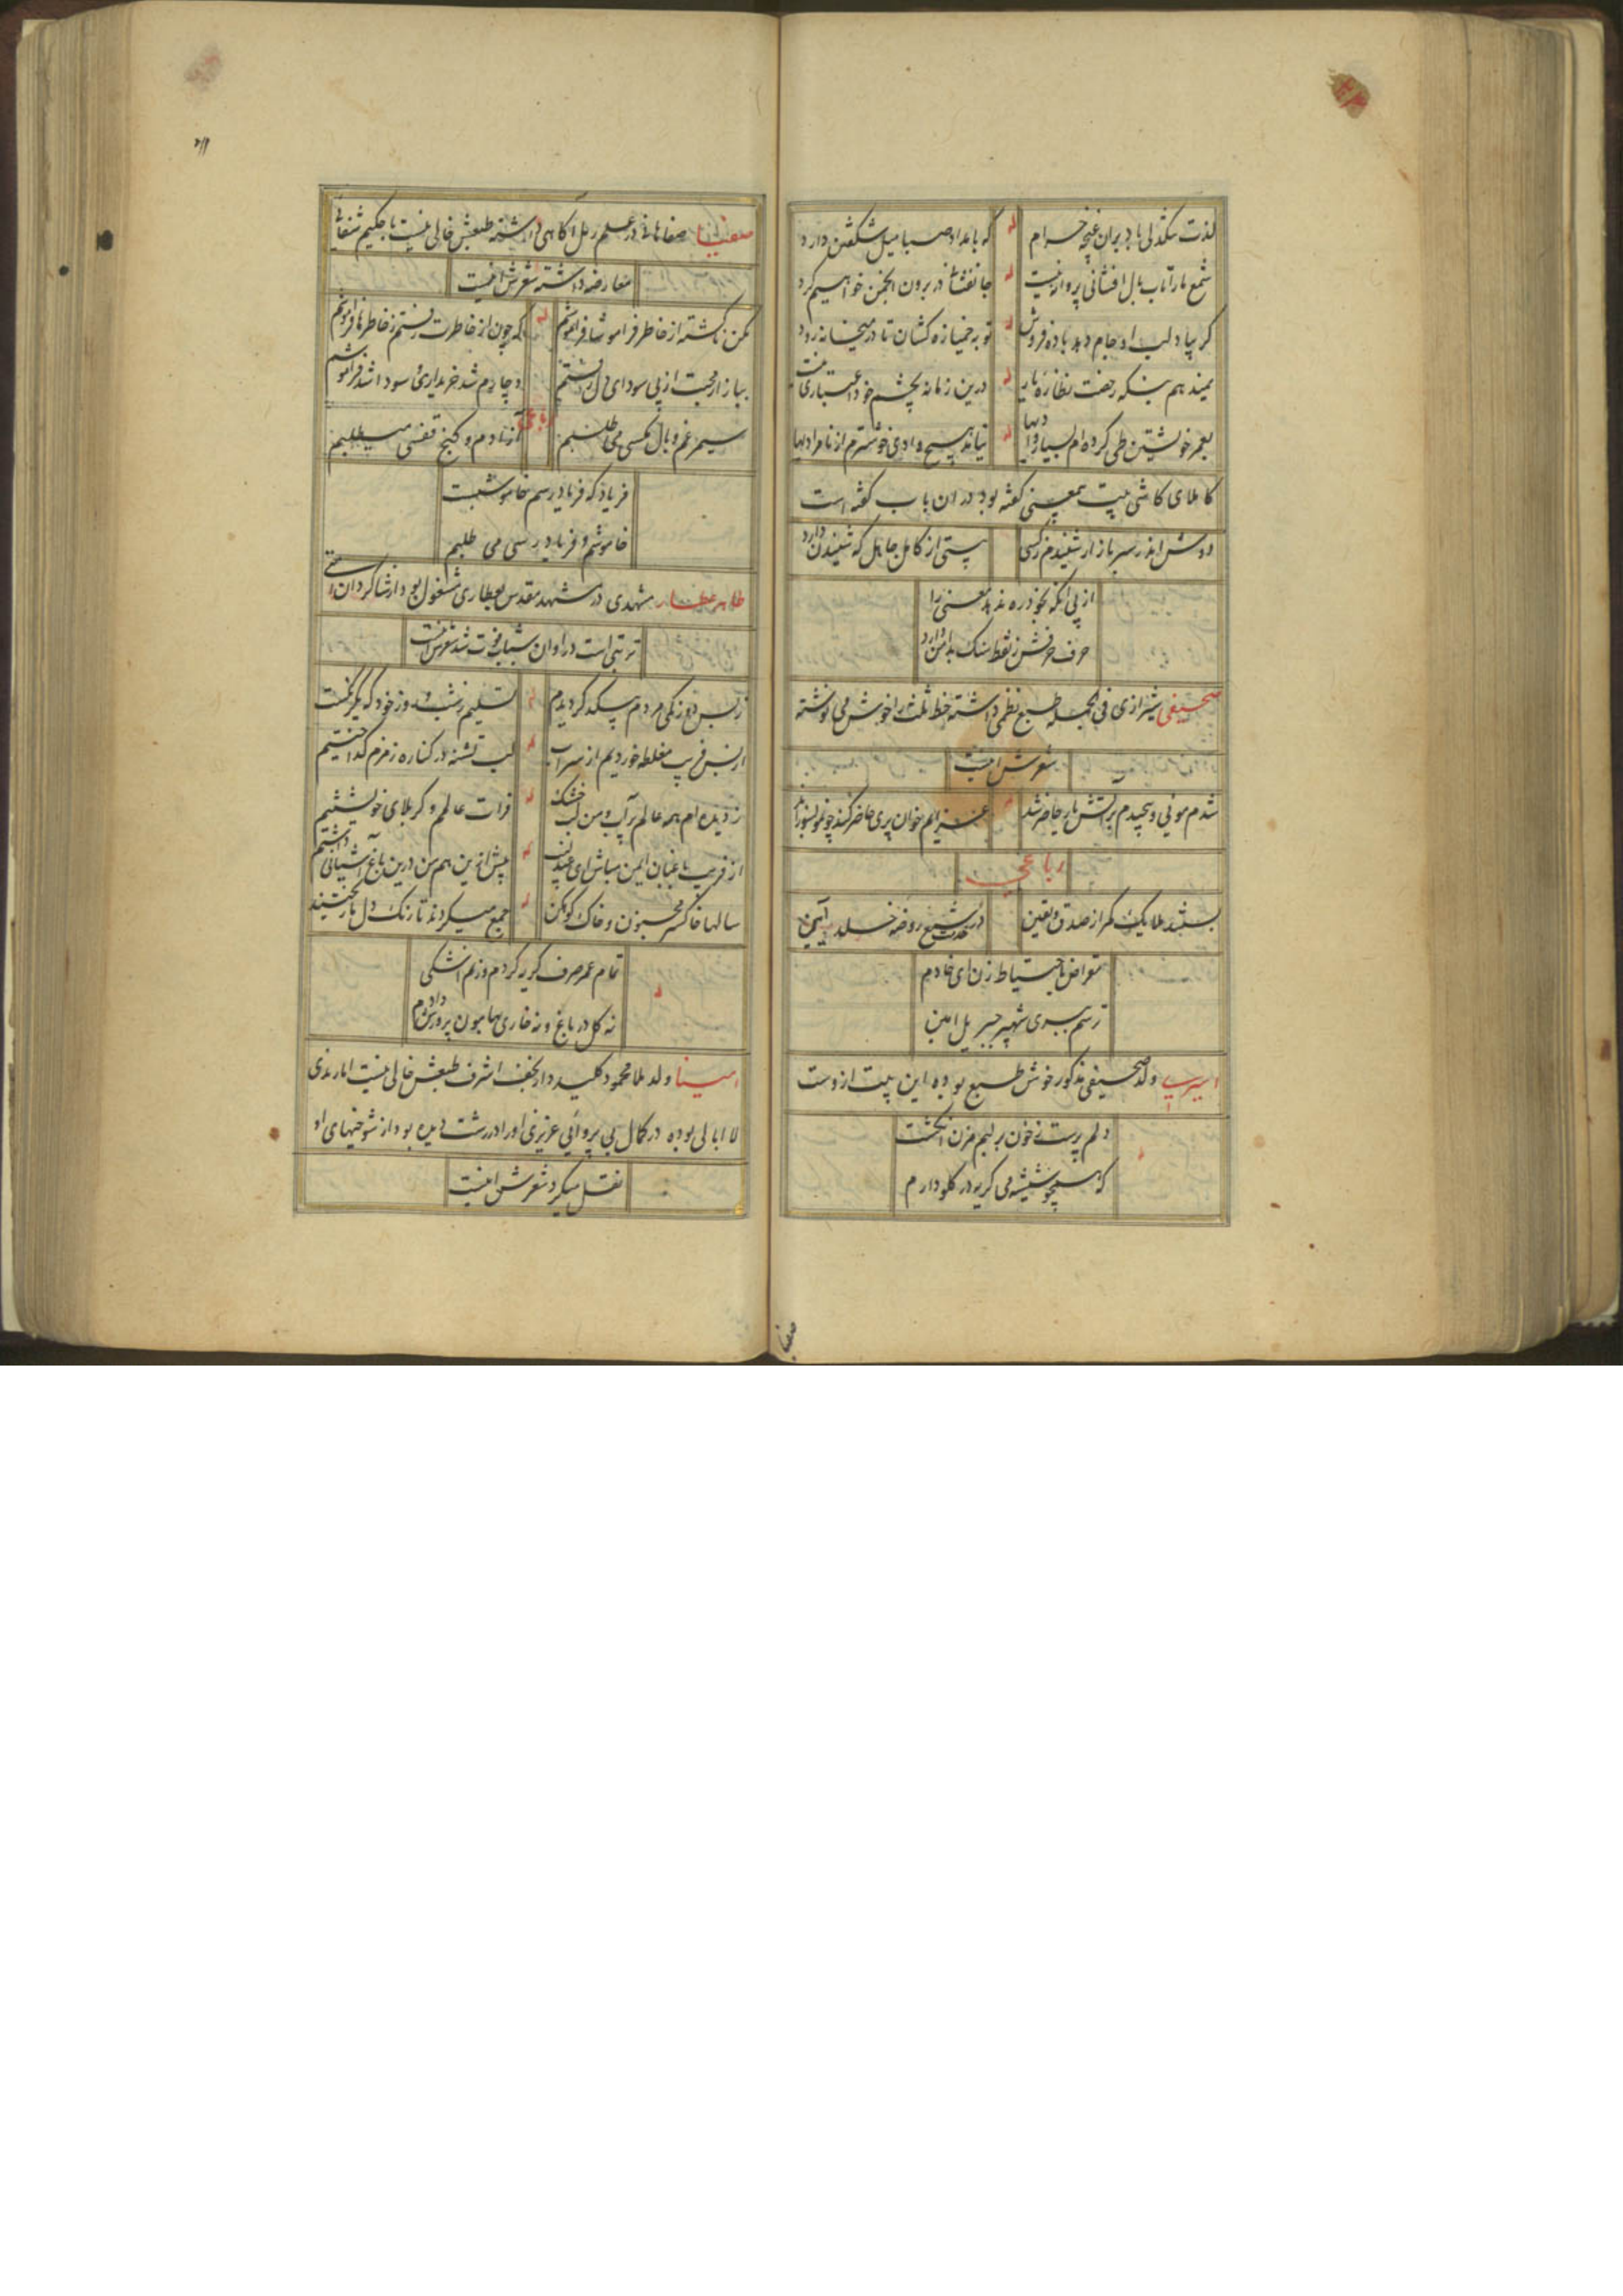 لذت سنگدلی باد بران غنچه حرام
که بامداد صبا میل شکفتن دارد
شمع ما را تاب بال افشانی پروانه نیست
جانفشانی در برون انجمن خواهیم کرد
گر بیاد لب او جام دهد باده فروش
توبه خمیازه کشان تا در میخانه رود
درین زمانه بچشم خود اعتباری نیست
بعمر خویشتن طی کرده ام بسیار وادیها
هیچ وادی خوشترم از نامرادیها
کاملای کاشی بیت بمعینی گفته بود در ان باب گفته است
دوش اندر سر بازار شنیدم ز کسی
بیتی از کامل جاهل که شنیدن دارد
از پی آنکه بخود ره ندهد معنی را
حرف حرفش ز نقط سنک بدامن دارد
صحیفی شیرازی فی الجمله طبع نظمی داشته خط ثلث را خوش می نوشته
شعرش اینست
شدم مونی و پیچیدم بر آتش یار حاضر شد
رباعی
در شمع روضه خلد آیین
مقراض باحتیاط زن ای خادم
ترسم ببری شهپر جبریل امین
ولد صحیفی مذکور خوش طبع بوده این بیت ازوست
دلم پرست ز خون بر لبم مزن انگشت
که همچو شیشه می گریه در گلو دارم
صفیا
صفاهانی در علم رمل آگاهی داشته طبعش خالی نیست با حکیم شفائی
معارضه داشته شعرش اینست
که چون از خاطرت رفتم ز خاطرها فراموشم
ببازار محبت از پی سودای دل رفتم
دچارم شد خریداری و سودا شد فراموشم
رباعی
سیمرغم و بال مکسی می طلبم
آزادم و کنج قفسی میطلبم
فریاد که فریادرسم خاموشیست
خاموشم و فریادرسی می طلبم
طاهر عطار مشهدی در مشهد مقدس بعطاری مشغول بود از شاگردان
تربتی است در اوان شباب فوت شد شعرش اینست
ز بس دو رنگی مردم بیکدگر دیدم
از بس فریب مغلطه خوردیم از سراب
لب تشنه در کناره زمزم گداختیم
ز دیده ام همه عالم پر آب و من لب خشک
فرات عالم و کربلای خویشتنم
از فریب باغبان ایمن مباش ای عندلیب
پیش ازین هم من درین باغ آشیانی داشتم
سالها خاکستر مجنون و خاک کوهکن
جمع میکردند تا رنک دل ما ریختند
تمام عمر صرف گریه کردم وز نم اشکی
نه گل در باغ و نه خاری بهامون پرورش دادم
امینا ولد ملا محمود کلیددار نجف اشرف طبعش خالی نیست اما رندی
لاابالی بوده در کمال بی پروائی عزیزی او را در رشت دیده بود از شوخیهای او
نقل میکرد شعرش اینست